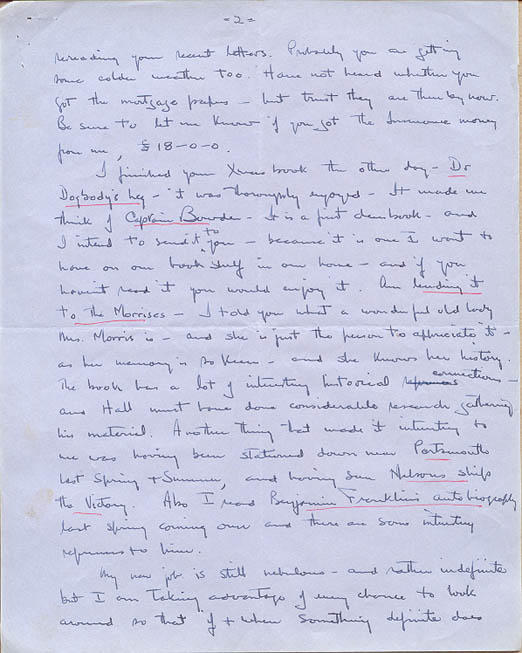 - 2 -
rereading your recent letters. Probably you are getting
some colder weather too. Have not heard whether you
got the mortgage papers - but trust they are there by now.
Be sure to let me know if you got the Insurance money
from me, £ 18-0-0.
I finished your Xmas book the other day - Dr
Dogbody's Leg - it was thoroughly enjoyed - It made me
think of Captain - It is a first class book - and
I intend to send it to you - because it is one I want to
have on our book shelf in our home - and if you
haven't read it you would enjoy it. Am lending it
to the Morrises - I told you what a wonderful old lady
Mrs. Morris is - and she is just the person to appreciate it -
as her memory is so keen - and she knows her history.
The book has a lot of interesting historical connections -
and Hall must have done considerable research gathering
his material. Another thing that made it interesting to
me was having been stationed down near Portsmouth
last Spring + Summer, and having seen Nelsons ship
the Victory. Also I read Benjamin Franklin's autobiography
last spring coming over and there are some interesting
references to him.
My new job is still nebulous - and rather indefinite
but I am taking advantage of every chance to look
around so that if + when something definite does